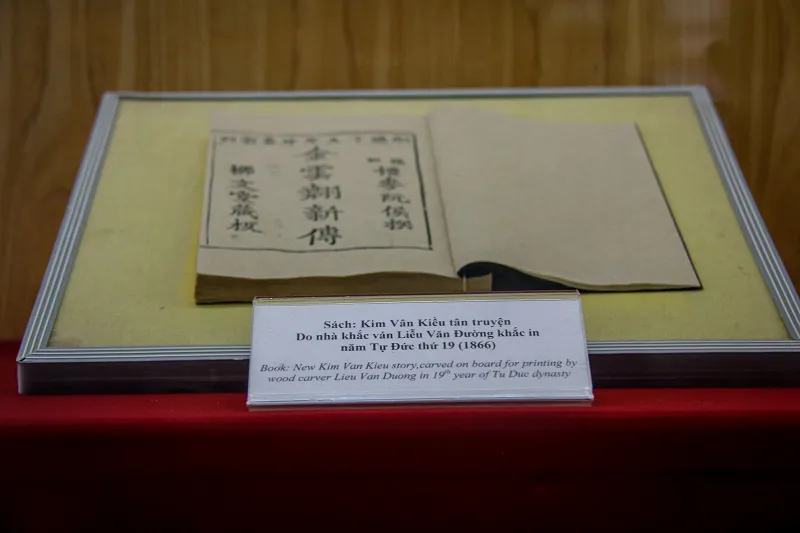 禮參阮侯撰
金雲翹新傳
柳文堂藏板
Sách: Kim Vân Kiều tân truyện
Do nhà khắc ván Liễu Văn Đường khắc in
năm Tự Đức thứ 19 (1866)
Book: New Kim Van Kieu story,carved on board for printing by
wood carver Lieu Van Duong in 19th year of Tu Duc dynasty